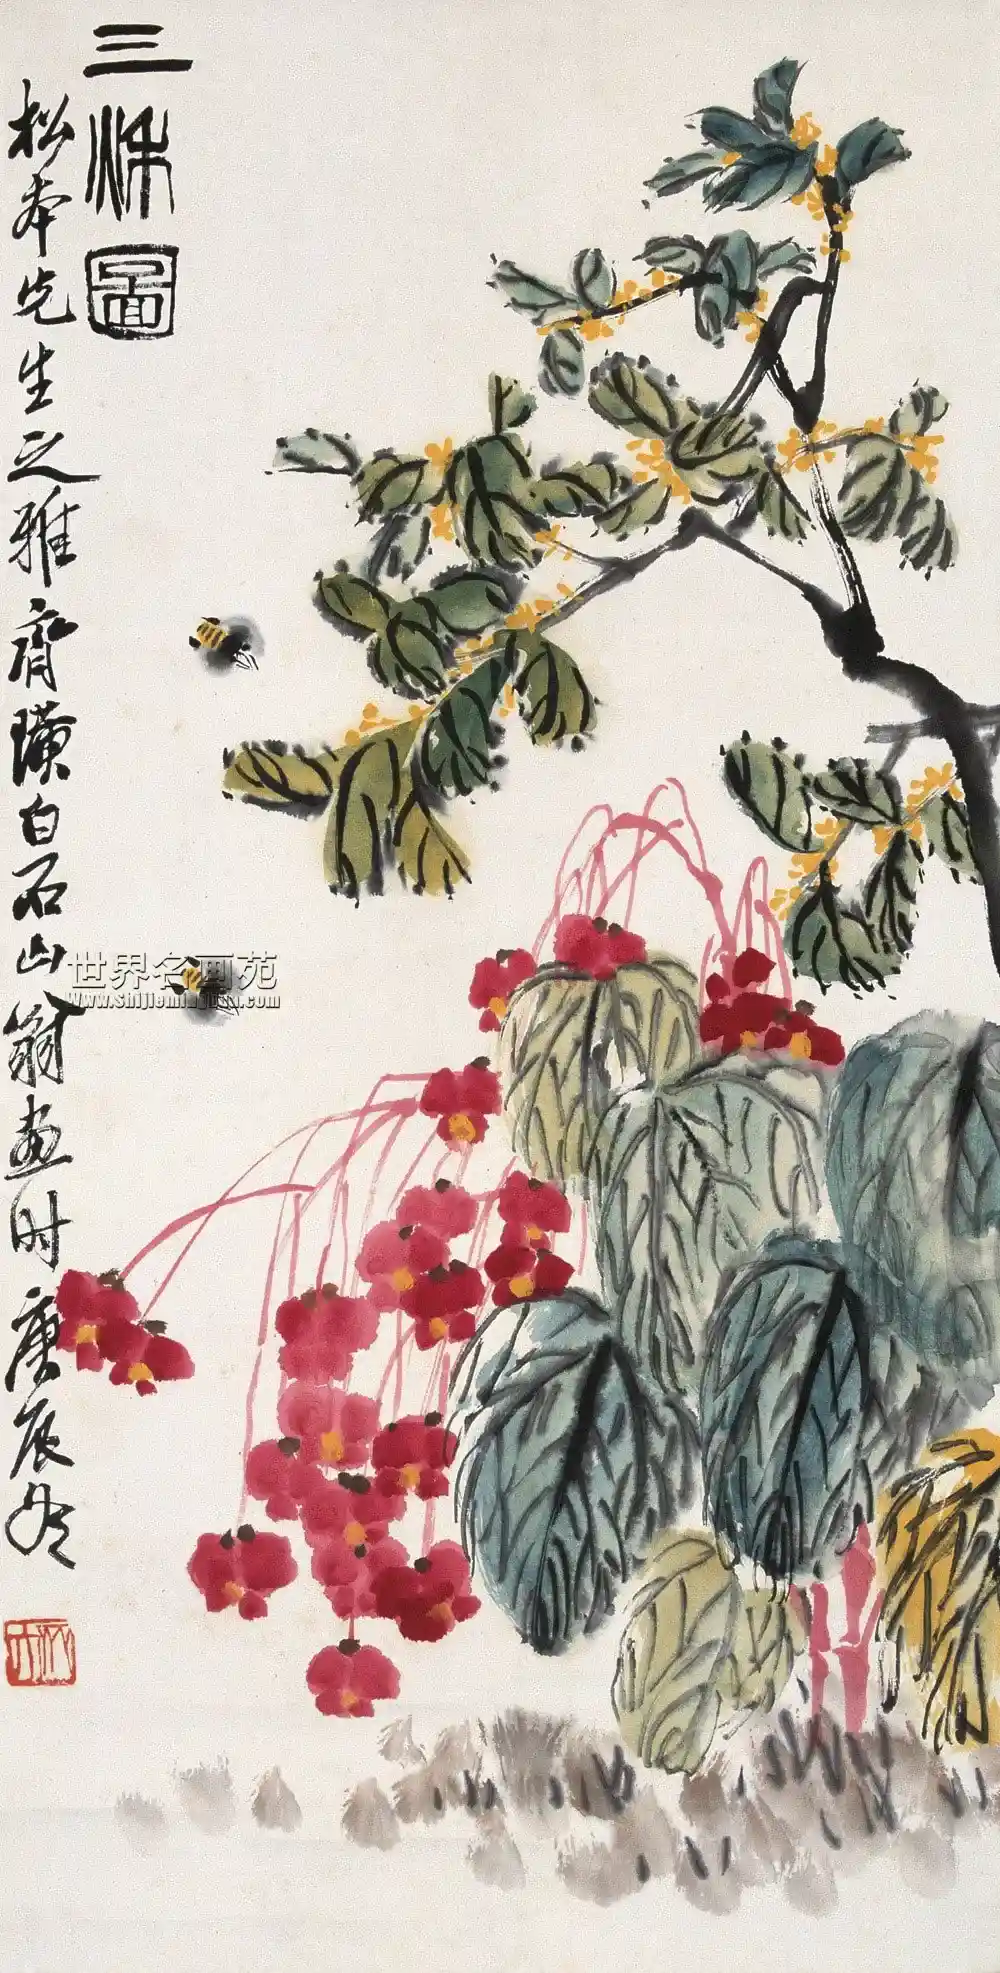 三秋圖
松本先生之雅齊璜白石山翁畫時庚辰冬
世界名画苑
www.shijieminghua.com